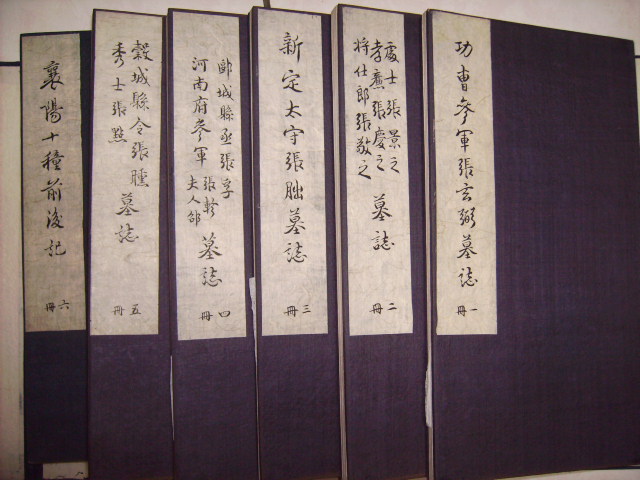 功曹參軍張玄弼墓誌
一冊
處士張景之
孝廉張慶之
將仕郎張敬之
墓誌
二冊
新定太守張朏墓誌
三冊
郾城縣丞張孚
河南府參軍張軫
夫人邰
墓誌
四冊
穀城縣令張曛
秀士張點
墓誌
五冊
襄陽十種前後記
六冊